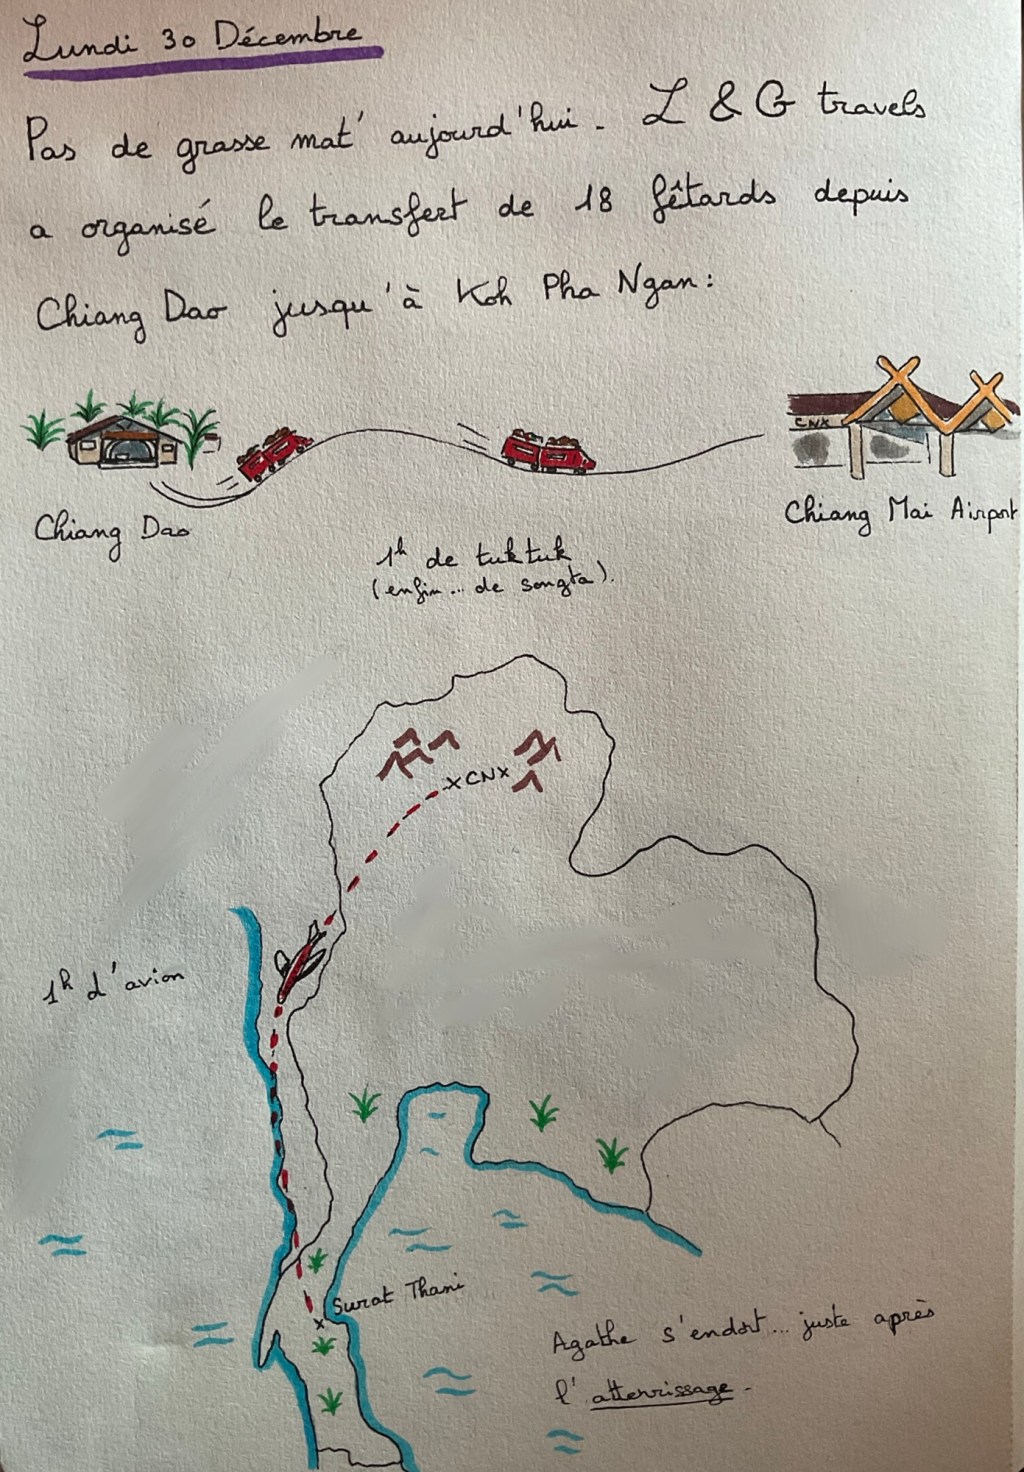 Lundi 30 Décembre
Pas de grasse mat' aujourd'hui. L & G travels
a organisé le transfert de 18 fêtards depuis
Chiang Dao jusqu'à Koh Pha Ngan:
CNX
Chiang Dao
Chiang Mai Airport
1h de tuktuk
(enfin... de songta).
x CNX
1h d'avion
Surat Thani
x
Agathe s'endort... juste après
l'atterrissage.